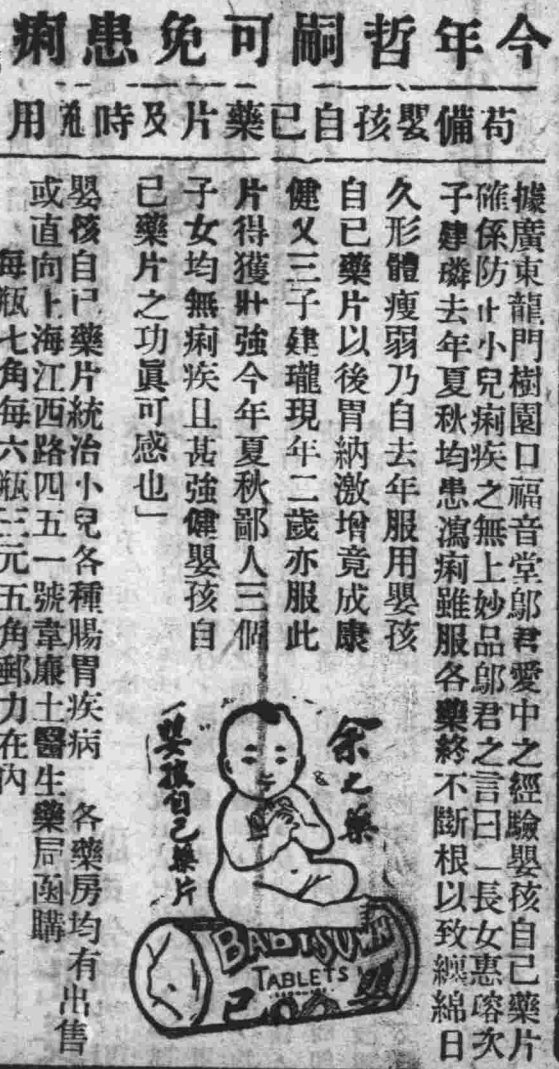 今年哲嗣可免患痢
苟備嬰孩自已藥片及時施用
據廣東龍門樹園口福音堂鄔君愛中之經驗嬰孩自已藥片
確係防止小兒痢疾之無上妙品鄔君之言曰「長女惠瑢次
子建璘去年夏秋均患瀉痢雖服各藥終不斷根以致纏綿日
久形體瘦弱乃自去年服用嬰孩
自已藥片以後胃納激增竟成康
健又三子建瓏現年二歲亦服此
片得獲壯強今年夏秋鄙人三個
子女均無痢疾且甚強健嬰孩自
已藥片之功眞可感也」
嬰孩自已藥片統治小兒各種腸胃疾病 各藥房均有出售
或直向上海江西路四五一號韋廉士醫生藥局函購
每瓶七角每六瓶三元五角郵力在內
余之藥
嬰孩自己藥片
BABY'S OWN
TABLETS
己 嬰